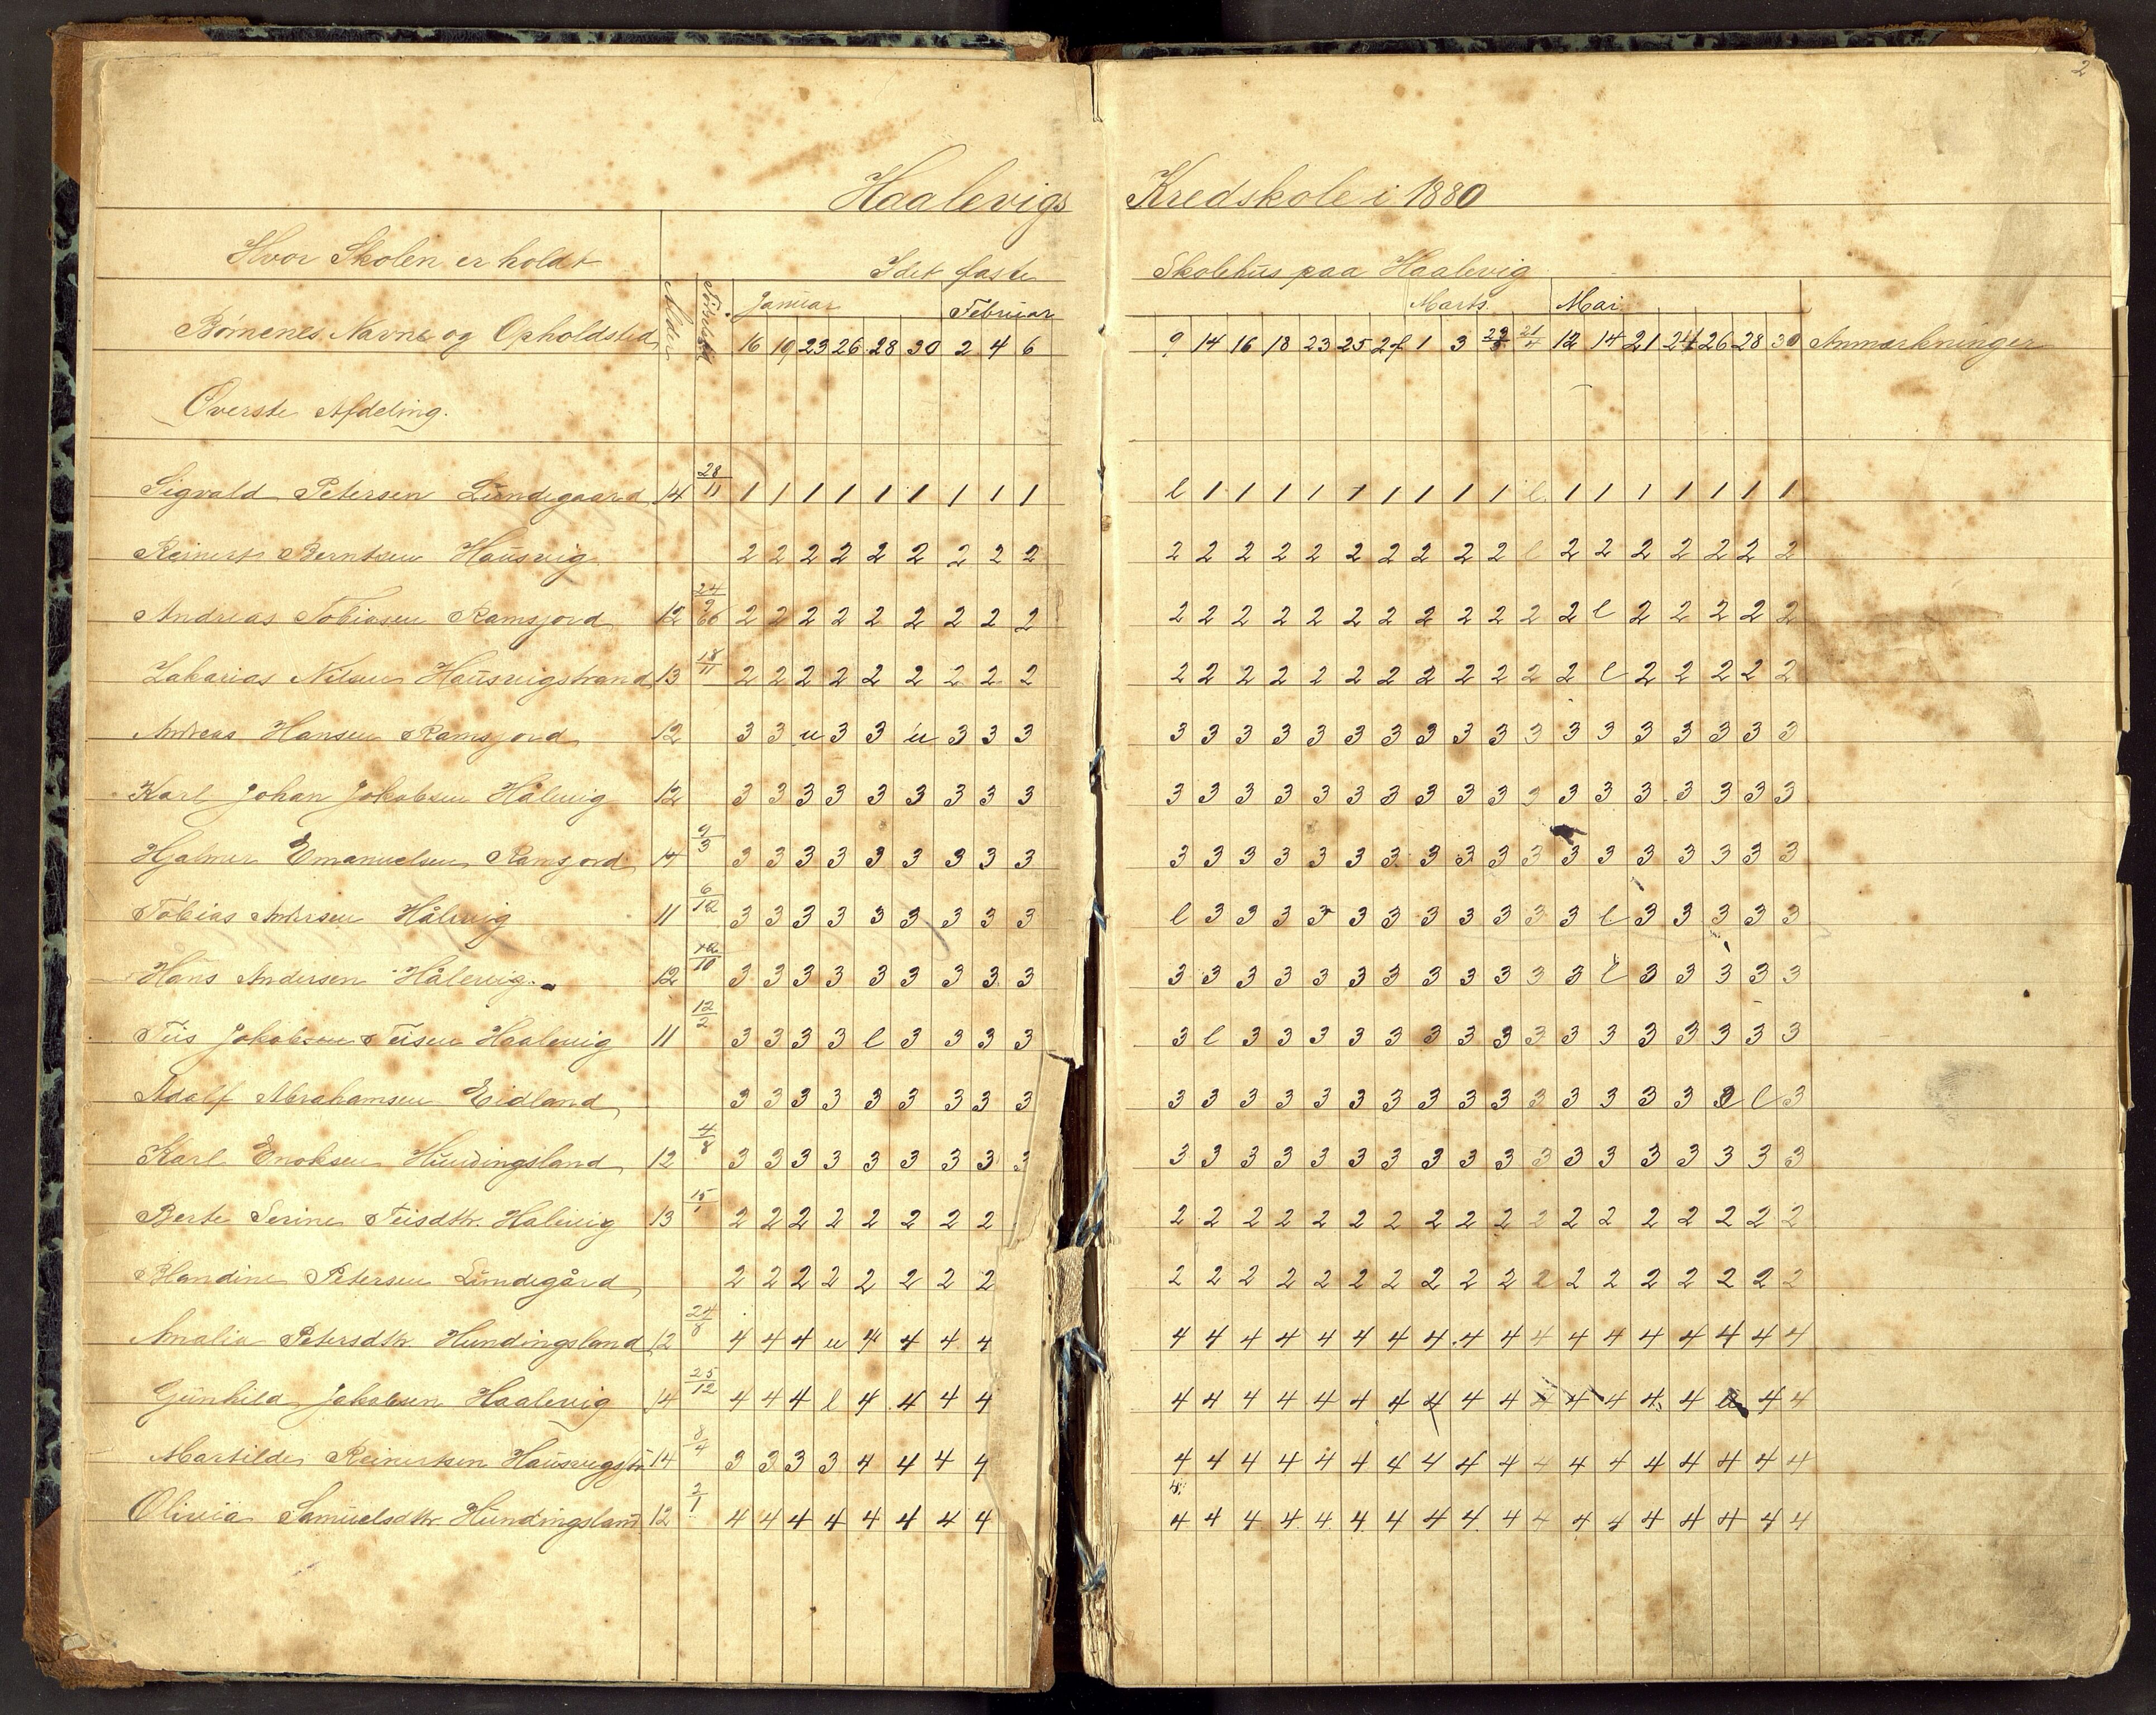 2
Haalevigs Kredskole i 1880
Hvor Skolen er holdt I det faste Skolehus paa Haalevig
Januar Februar Marts. Mai
Børnenes Navne og Opholdsted Alder 16 19 23 26 28 30 2 4 6 9 14 16 18 23 25 27 1 3 21/4 12 14 21 24 26 28 30 Anmærkninger
Øverste Afdeling.
Sigvald Petersen Lundegaard 14 28/11 1 1 1 1 1 1 1 1 1 l 1 1 1 1 1 1 1 1 1 l 1 1 1 1 1 1 1
Reinert Berntsen Hausvig 2 2 2 2 2 2 2 2 2 2 2 2 2 2 2 2 2 2 2 l 2 2 2 2 2 2 2
Andreas Tobiasen Ramsjord 12 24/9 66 2 2 2 2 2 2 2 2 2 2 2 2 2 2 2 2 2 2 2 2 2 l 2 2 2 2 2
Zakarias Nilsen Hausvigstrand 13 18/11 2 2 2 2 2 2 2 2 2 2 2 2 2 2 2 2 2 2 2 2 2 l 2 2 2 2 2
Andreas Hansen Ramsjord 12 3 3 u 3 3 u 3 3 3 3 3 3 3 3 3 3 3 3 3 3 3 3 3 3 3 3 3
Karl Johan Jakobsen Hålevig 12 3 3 3 3 3 3 3 3 3 3 3 3 3 3 3 3 3 3 3 3 3 3 3 3 3 3 3
Hjalmer Emanuelsen Ramsjord 14 9/3 3 3 3 3 3 3 3 3 3 3 3 3 3 3 3 3 3 3 3 3 3 3 3 3 3 3 3
Tobias Andersen Hålevig 11 6/12 3 3 3 3 3 3 3 3 3 l 3 3 3 3 3 3 3 3 3 3 3 l 3 3 3 3 3
Hans Andersen Hålevig 12 12/10 3 3 3 3 3 3 3 3 3 3 3 3 3 3 3 3 3 3 3 3 3 l 3 3 3 3 3
Teis Jakobsen Teisen Haalevig 11 12/2 3 3 3 3 l 3 3 3 3 3 l 3 3 3 3 3 3 3 3 3 3 3 3 3 3 3 3
Adolf Abrahamsen Eidland 3 3 3 3 3 3 3 3 3 3 3 3 3 3 3 3 3 3 3 3 3 3 3 3 l l 3
Karl Enoksen Hundingsland 12 4/8 3 3 3 3 3 3 3 3 3 3 3 3 3 3 3 3 3 3 3 3 3 3 3 3 3 3 3
Berte Serine Teisdtr. Hålevig 13 15/1 2 2 2 2 2 2 2 2 2 2 2 2 2 2 2 2 2 2 2 2 2 2 2 2 2 2
Blandine Petersen Lundegård 2 2 2 2 2 2 2 2 2 2 2 2 2 2 2 2 2 2 2 2 2 2 2 2 2 2
Amalia Petersdtr. Hundingsland 12 24/8 4 4 4 u 4 4 4 4 4 4 4 4 4 4 4 4 4 4 4 4 4 4 4 4 4 4
Gunhild Jakobsen Haalevig 14 25/12 4 4 4 l 4 4 4 4 4 4 4 4 4 4 4 4 4 4 4 4 4 4 4 4 4
Martilde Reinertsen Hausvigstr 14 8/4 3 3 3 3 4 4 4 4 4 4 4 4 4 4 4 4 4 4 4 4 4 4 4 4 4 4
Olivia Samuelsdtr. Hundingsland 12 2/1 4 4 4 4 4 4 4 4 4 4 4 4 4 4 4 4 4 4 4 4 4 4 4 4 4 4